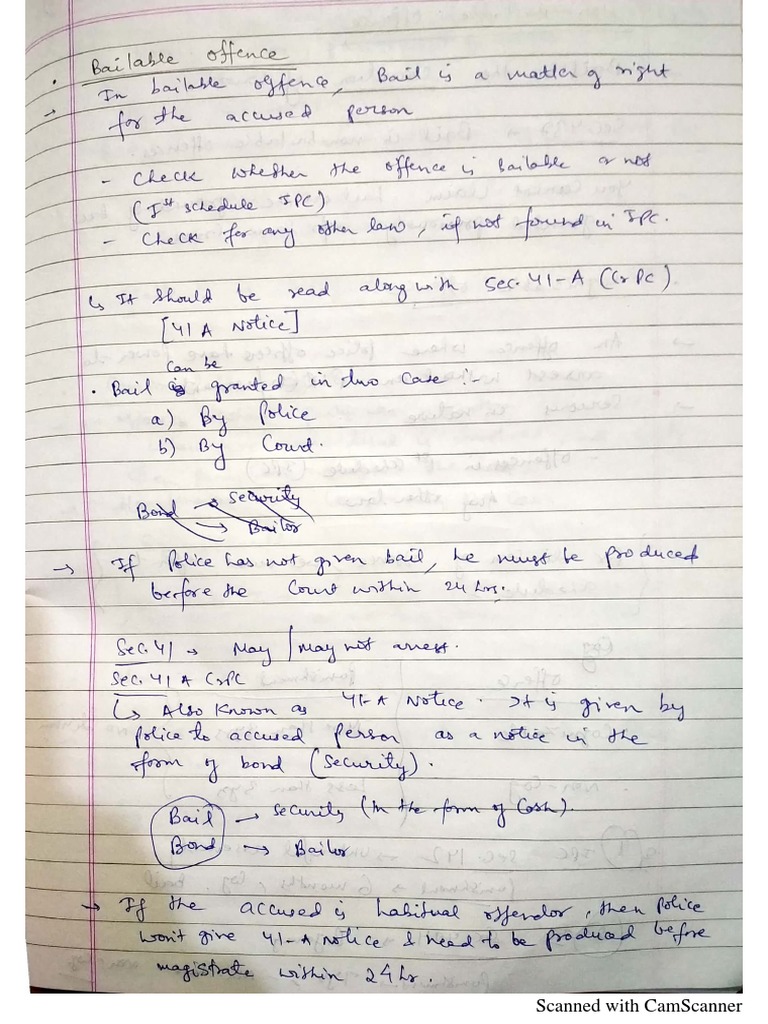 • Bailable offence
→ In bailable offence, Bail is a matter of right
for the accused person
- Check whether the offence is bailable or not
(Ist schedule IPC)
- Check for any other law, if not found in IPC.
↳ It should be read along with Sec. 41-A (CrPC)
[41 A Notice]
can be
• Bail is granted in two case :-
a) By Police
b) By Court.
Bond → Security
→ Bailor
→ If Police has not given bail, he must be produced
before the Court within 24 hrs.
Sec. 41 → May / may not arrest.
Sec. 41 A CrPC
↳ Also known as 41-A Notice. It is given by
police to accused person as a notice in the
form of bond (security).
Bail → Security (In the form of Cash).
Bond → Bailor
→ If the accused is habitual offendor, then police
won't give 41-A notice & need to be produced before
magistrate within 24 hr.
Scanned with CamScanner